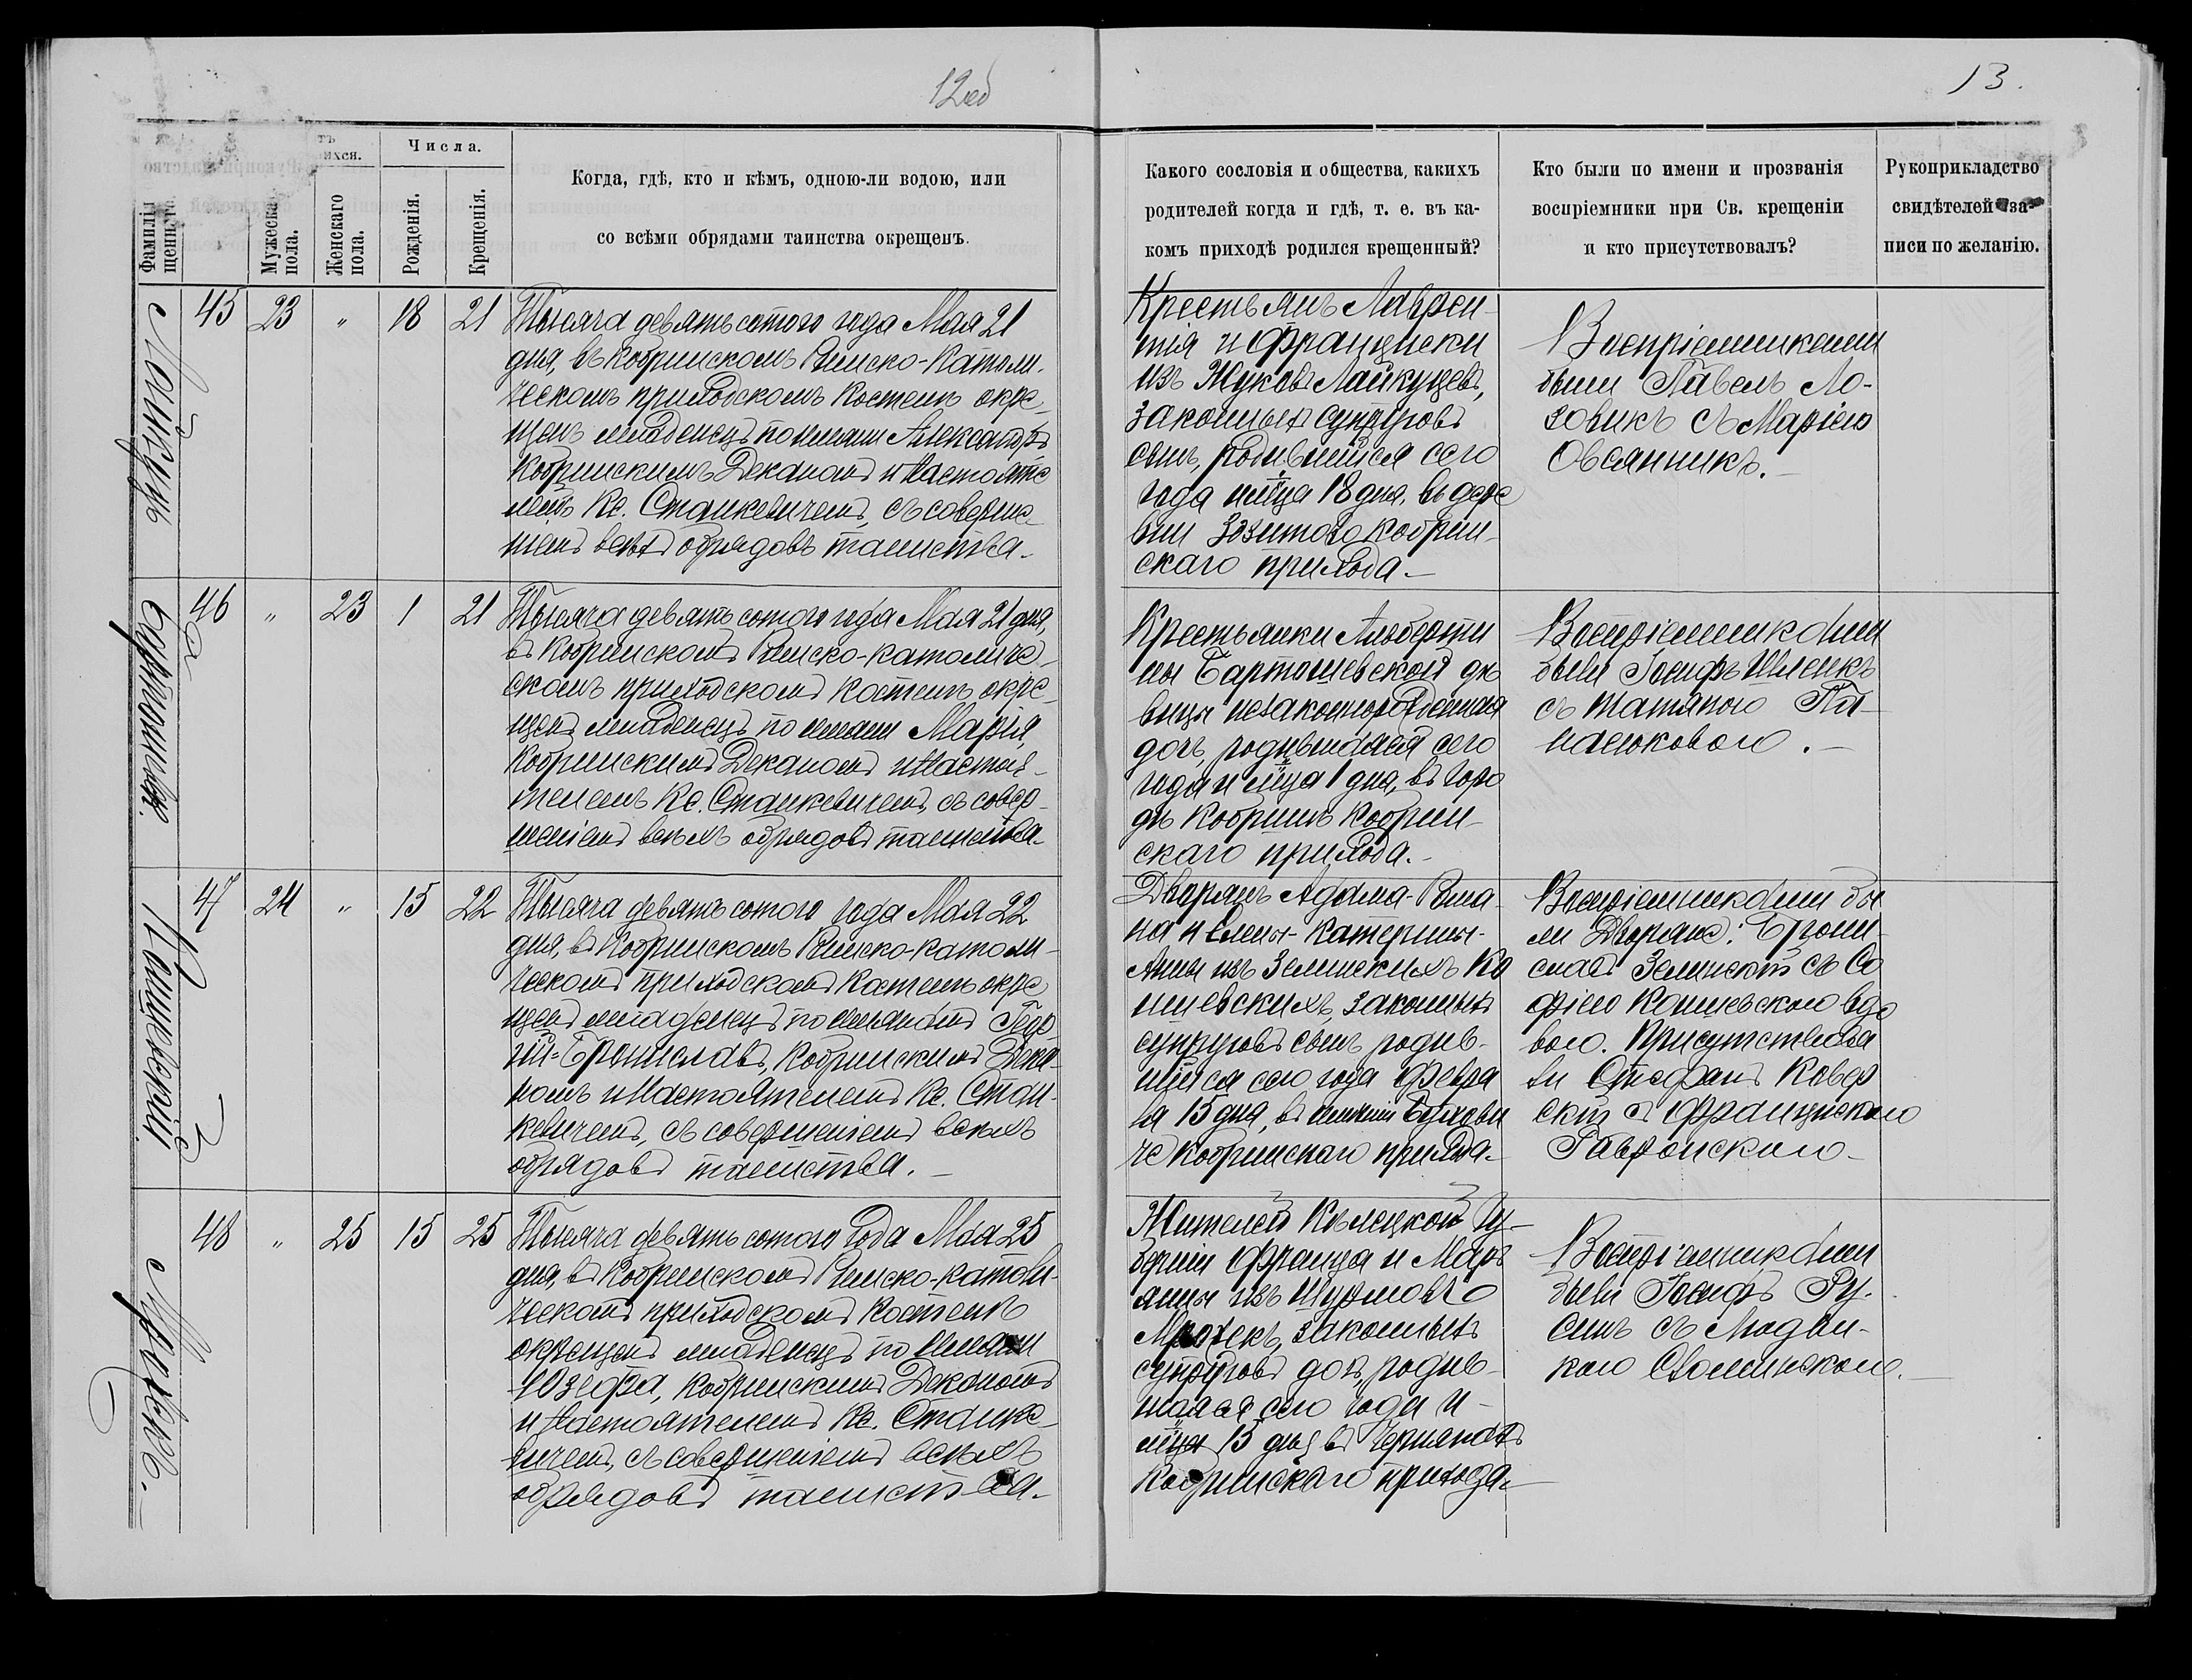 12об
13.
Фамилія
щеннаго
тъ
ихся.
Числа.
Мужеска
пола.
Женскаго
пола.
Рожденія.
Крещенія.
Когда, гдѣ, кто и кѣмъ, одною-ли водою, или
со всѣми обрядами таинства окрещенъ.
Какого сословія и общества, какихъ
родителей когда и гдѣ, т. е. въ ка-
комъ приходѣ родился крещенный?
Кто были по имени и прозванія
воспріемники при Св. крещеніи
и кто присутствовалъ?
Рукоприкладство
свидѣтелей за-
писи по желанію.
Лойкуцъ
45 23 " 18 21
Тысяча девятьсотого года Мая 21
дня, въ Кобринскомъ Римско-Католи-
ческомъ приходскомъ Костелѣ окре-
щенъ младенецъ по имени Александръ
Кобринскимъ Деканомъ и Настояте
лемъ Кс. Станкевичемъ, съ соверше-
ніемъ всѣхъ обрядовъ таинства.
Крестьянъ Лаврен-
тія и Франциски
изъ Жуковъ Лайкуцевъ,
законныхъ супруговъ
сынъ, родившійся сего
года и мца 18 дня, въ дере
вни Зозитово Кобрин-
скаго прихода.
Воспріемниками
были Павелъ Ло-
зовикъ съ Маріею
Овсянникъ.
46 " 23 1 21
Тысяча девятьсотого года Мая 21 дня,
въ Кобринскомъ Римско-католиче-
скомъ приходскомъ Костелѣ окре-
щенъ младенецъ по имени Марія,
Кобринскимъ Деканомъ и Настоя-
телемъ Кс. Станкевичемъ, съ совер-
шеніемъ всѣхъ обрядовъ таинства
Крестьянки Альберти
ны Бартошевской дѣ
вицы незаконнорожденная
дочь, родившаяся сего
года и мца 1 дня, въ горо
дѣ Кобринѣ Кобрин-
скаго прихода.
Воспріемниками
были Іосифъ
съ Татяною Па-
насюковою.
Кошевскій
47 24 " 15 22
Тысяча девятьсотого года Мая 22
дня, въ Кобринскомъ Римско-католи-
ческомъ приходскомъ Костелѣ окре
щенъ младенецъ по именамъ Геор
гій=Брониславъ, Кобринскимъ Дека-
номъ и Настоятелемъ Кс. Стан-
кевичемъ, съ совершеніемъ всѣхъ
обрядовъ таинства.
Дворянъ Адама-Рома-
на и Елены-Катерины-
Анны изъ Зелинскихъ Ко
шевскихъ, законныхъ
супруговъ сынъ, родив-
шійся сего года Февра
ля 15 дня, въ имѣніи Борхови
че Кобринскаго прихода
Воспріемниками бы
ли Дворяне: Брони-
славъ Зелинскій съ Со
фіею Кошевскою вдо
вою. Присутствова
ли Стефанъ
съ Францискою
48 " 25 15 25
Тысяча девятьсотого года Мая 25
дня, въ Кобринскомъ Римско-католи-
ческомъ приходскомъ Костелѣ
окрещенъ младенецъ по имени
Юзефа, Кобринскимъ Деканомъ
и Настоятелемъ Кс. Станке-
вичемъ, съ совершеніемъ всѣхъ
обрядовъ таинства.
Жителей Кѣлецкой Гу-
берніи Франца и Марі
янны изъ
законныхъ
супруговъ дочь, родив-
шаяся сего года и
мца 15 дня, въ
Кобринскаго прихода
Воспріемниками
были Іосифъ Ру-
синъ съ Людви-
кою